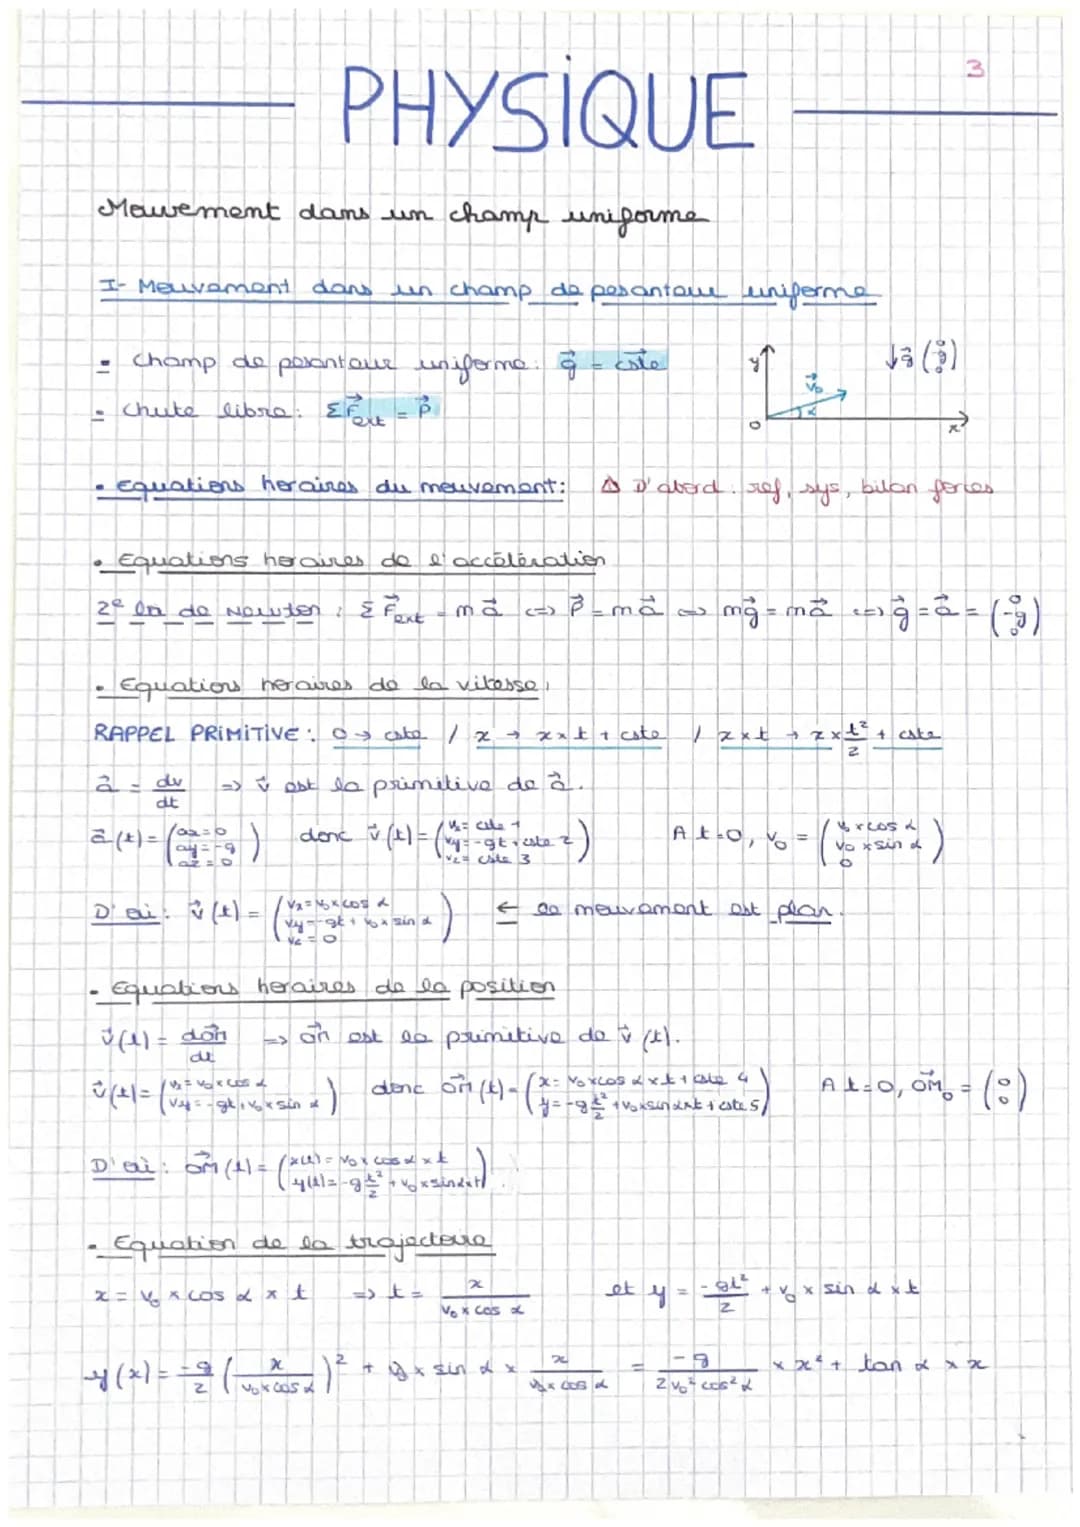 3
PHYSIQUE
Mouvement dans un champ uniforme
I- Mouvement dans un champ de pesanteur uniforme
- Champ de pesanteur uniforme : g⃗ = cste⃗
- Chute libre : ΣF⃗ext = P⃗
y v⃗₀ α O x ↓g⃗ (0 -g 0)
• Equations horaires du mouvement : ⚠ D'abord : ref, sys, bilan forces
• Equations horaires de l'accélération
2e loi de Newton : ΣF⃗ext = ma⃗ <=> P⃗ = ma⃗ <=> mg⃗ = ma⃗ <=> g⃗ = a⃗ = (0 -g 0)
• Equations horaires de la vitesse :
RAPPEL PRIMITIVE : 0 → cste / x → x×t + cste / x×t → x×t²/2 + cste
a⃗ = dv/dt => v⃗ est la primitive de a⃗.
a⃗(t) = (ax = 0 ay = -g az = 0) donc v⃗(t) = (vx = cste 1 vy = -gt + cste 2 vz = cste 3) A t=0, v₀⃗ = (v₀ × cos α v₀ × sin α 0)
D'où : v⃗(t) = (vx = v₀ × cos α vy = -gt + v₀ × sin α vz = 0) ← le mouvement est plan.
- Equations horaires de la position
v⃗(t) = dOM⃗/dt => OM⃗ est la primitive de v⃗(t).
v⃗(t) = (vx = v₀ × cos α vy = -gt + v₀ × sin α) donc OM⃗(t) = (x = v₀ × cos α × t + cste 4 y = -g t²/2 + v₀ × sin α × t + cste 5) A t=0, OM₀⃗ = (0 0)
D'où : OM⃗(t) = (x(t) = v₀ × cos α × t y(t) = -g t²/2 + v₀ × sin α × t).
• Equation de la trajectoire
x = v₀ × cos α × t => t = x/(v₀ × cos α) et y = -gt²/2 + v₀ × sin α × t
y(x) = -g/2 (x/(v₀ × cos α))² + v₀ × sin α × x/(v₀ × cos α) = -g/(2v₀² cos² α) × x² + tan α × x